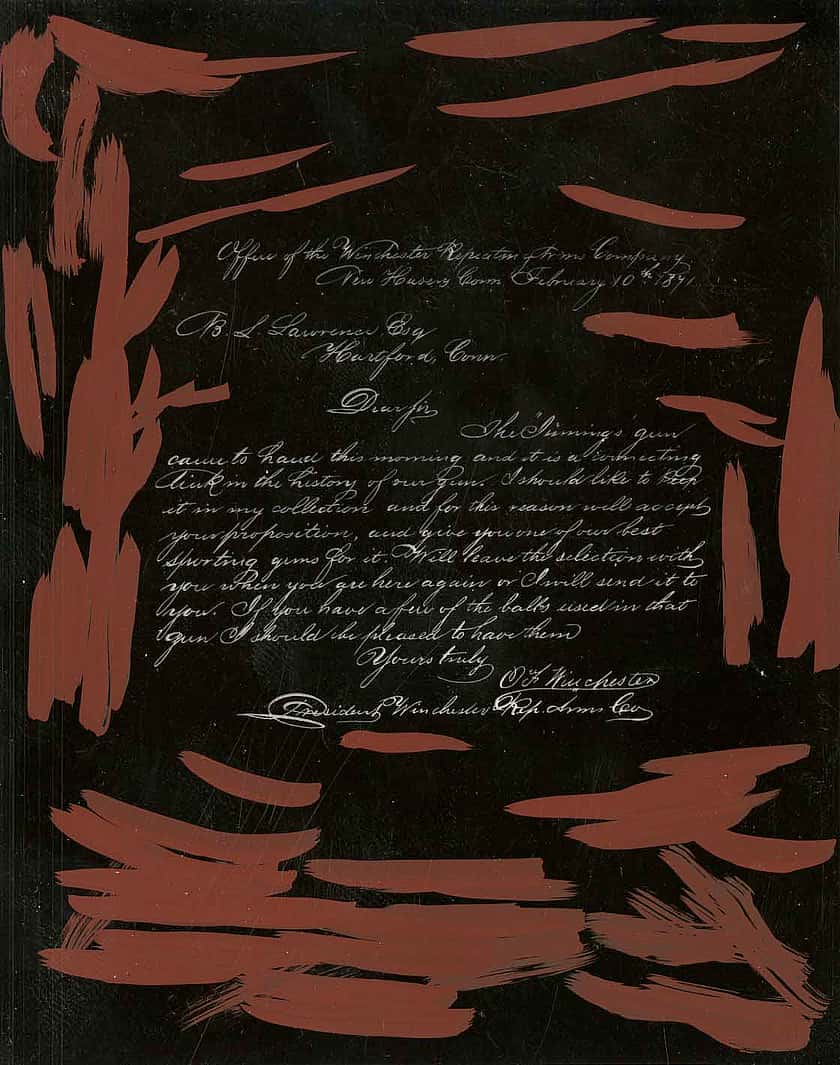 Office of the Winchester Repeating Arms Company
New Haven, Conn February 10th 1871
B. L. Lawrence Esq
Hartford, Conn.
Dear sir
The "Jennings" gun
came to hand this morning and it is a connecting
link in the history of our gun. I should like to keep
it in my collection and for this reason will accept
your proposition, and give you one of our best
sporting guns for it. Will leave the selection with
you when you are here again or I will send it to
you. If you have a few of the balls used in that
gun I should be pleased to have them
Yours truly
O F Winchester
President Winchester Rep. Arms Co.